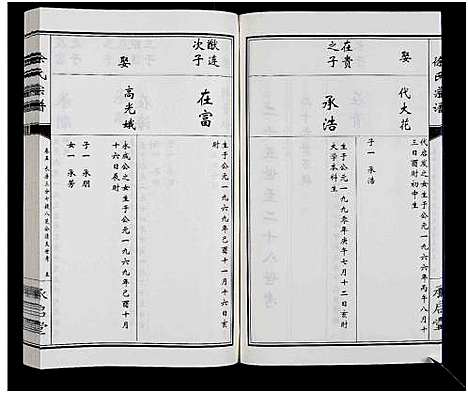 徐氏宗譜
承启堂
娶
代大花
代启发之女生于公元一九六六年丙午八月十
三日酉时初中生
子一 承浩
在贵
之子
承浩
生于公元一九九零年庚午七月十二日亥时
大学本科生
猷连
次子
在富
生于公元一九六九年己酉十一月十六日亥
时
娶
高光娥
永成公之女生于公元一九六九年己酉十月
十六日辰时
子一 承朋
女一 承芳
徐氏宗譜
承启堂